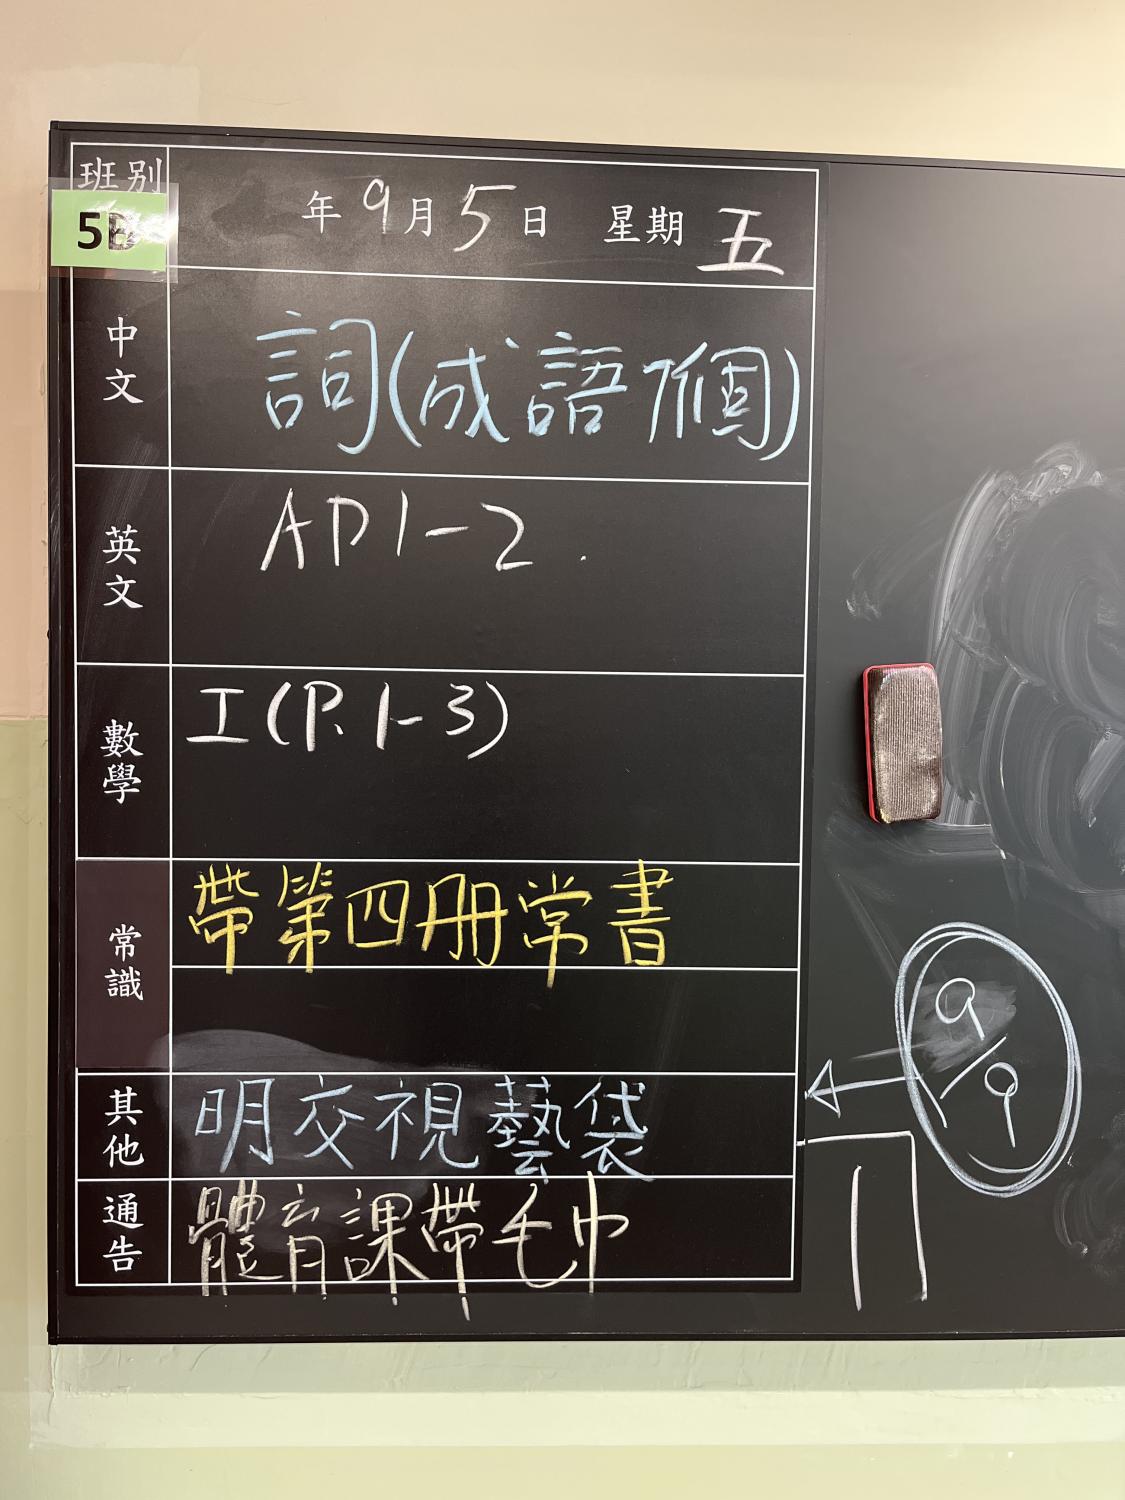 班別
5B
年 9 月 5 日 星期 五
中文
詞(成語7個)
英文
AP1-2.
數學
工(P.1-3)
常識
帶第四冊常書
其他
明交視藝袋
通告
體育課帶毛巾
9/9